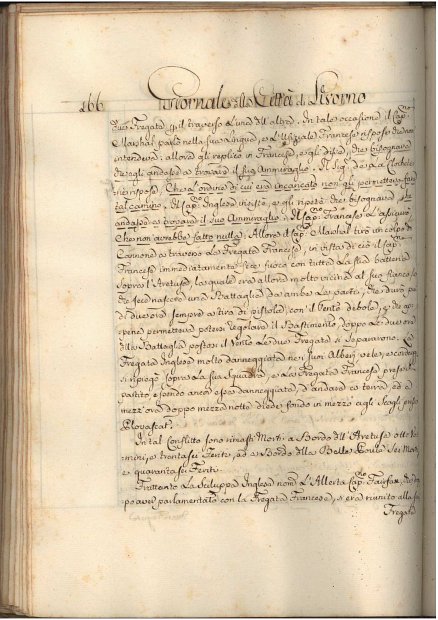 166 Giornale della Città di Livorno
due Fregate p il traverso l'una dll altra. In tale occasione il Cap.no
Marshal parlò nella sua lingua, e l'Uffiziale Francese rispose che non
intendeva; allora gli replicò in Francese, e gli disse, che bisognava
che egli andasse a trovare il suo Ammiraglio. Il Sig.r de la Clocheterie
rispose, Che l'ordine di cui era incaricato non gli permetteva far
tal camino. Il Cap.no Inglese insistè, e gli ripetè che bisognava che
andasse a trovare il suo Ammiraglio. Il Cap.no Francese l'assicurò
Che non avrebbe fatto nulla. Allora il Cap.no Marshal tirò un colpo di
Cannone a traverso la Fregata Francese, in vista di ciò il Cap.no
Francese immediatamente fece fuoco con tutta la sua batteria
sopra l'Aretusa, la quale era allora molto vicina al suo fianco, il
che fece nascere una Battaglia da ambe le parti, che durò più
di due ore sempre a tiro di pistola, con il Vento debole, che ap-
pena permetteva potersi regolare il Bastimento, doppo le due ore
della Battaglia postosi il Vento le due Fregate si separarono. La
Fregata Inglese molto danneggiata nei suoi Alberi, vele, e cordaggi
si ripiegò sopra la sua Squadra, e la Fregata Francese prese il
partito essendo ancor essa danneggiata, d'andare a terra, ed a
mezz'ora doppo mezza notte diede fondo in mezzo agli Scogli presso
Plovascat.
In tal Conflitto sono rimasti Morti a Bordo dll'Aretusa otto Uo-
mini, e trentasei Feriti, ed a Bordo della Belle Poule Sei Morti
e quarantasei Feriti.
Frattanto la Scialuppa Inglese nom.a l'Allerta Cap.no Fairfax, do-
po aver parlamentato con la Fregata Francese, s'era riunito alla sua
Fregata